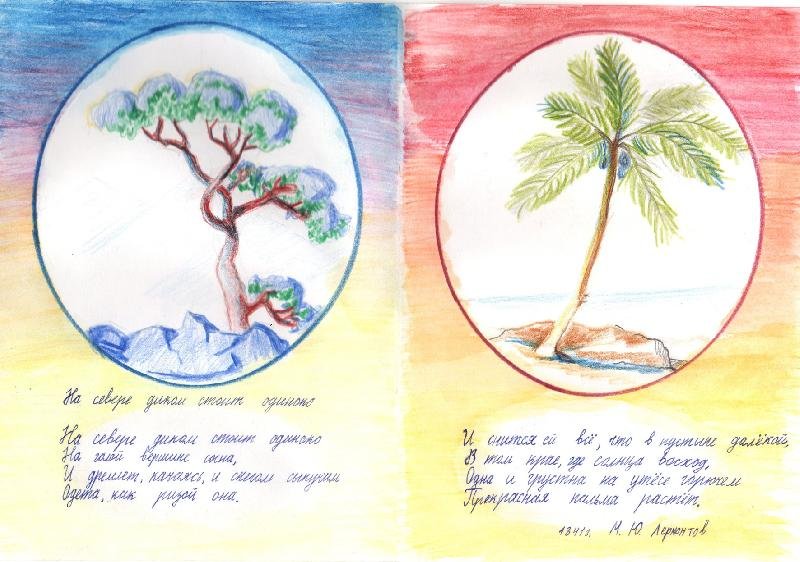 На севере диком стоит одиноко
На севере диком стоит одиноко
На голой вершине сосна,
И дремлет, качаясь, и снегом сыпучим
Одета, как ризой она.
И снится ей всё, что в пустыне далёкой,
В том крае, где солнца восход,
Одна и грустна на утёсе горючем
Прекрасная пальма растёт.
1841г. М. Ю. Лермонтов